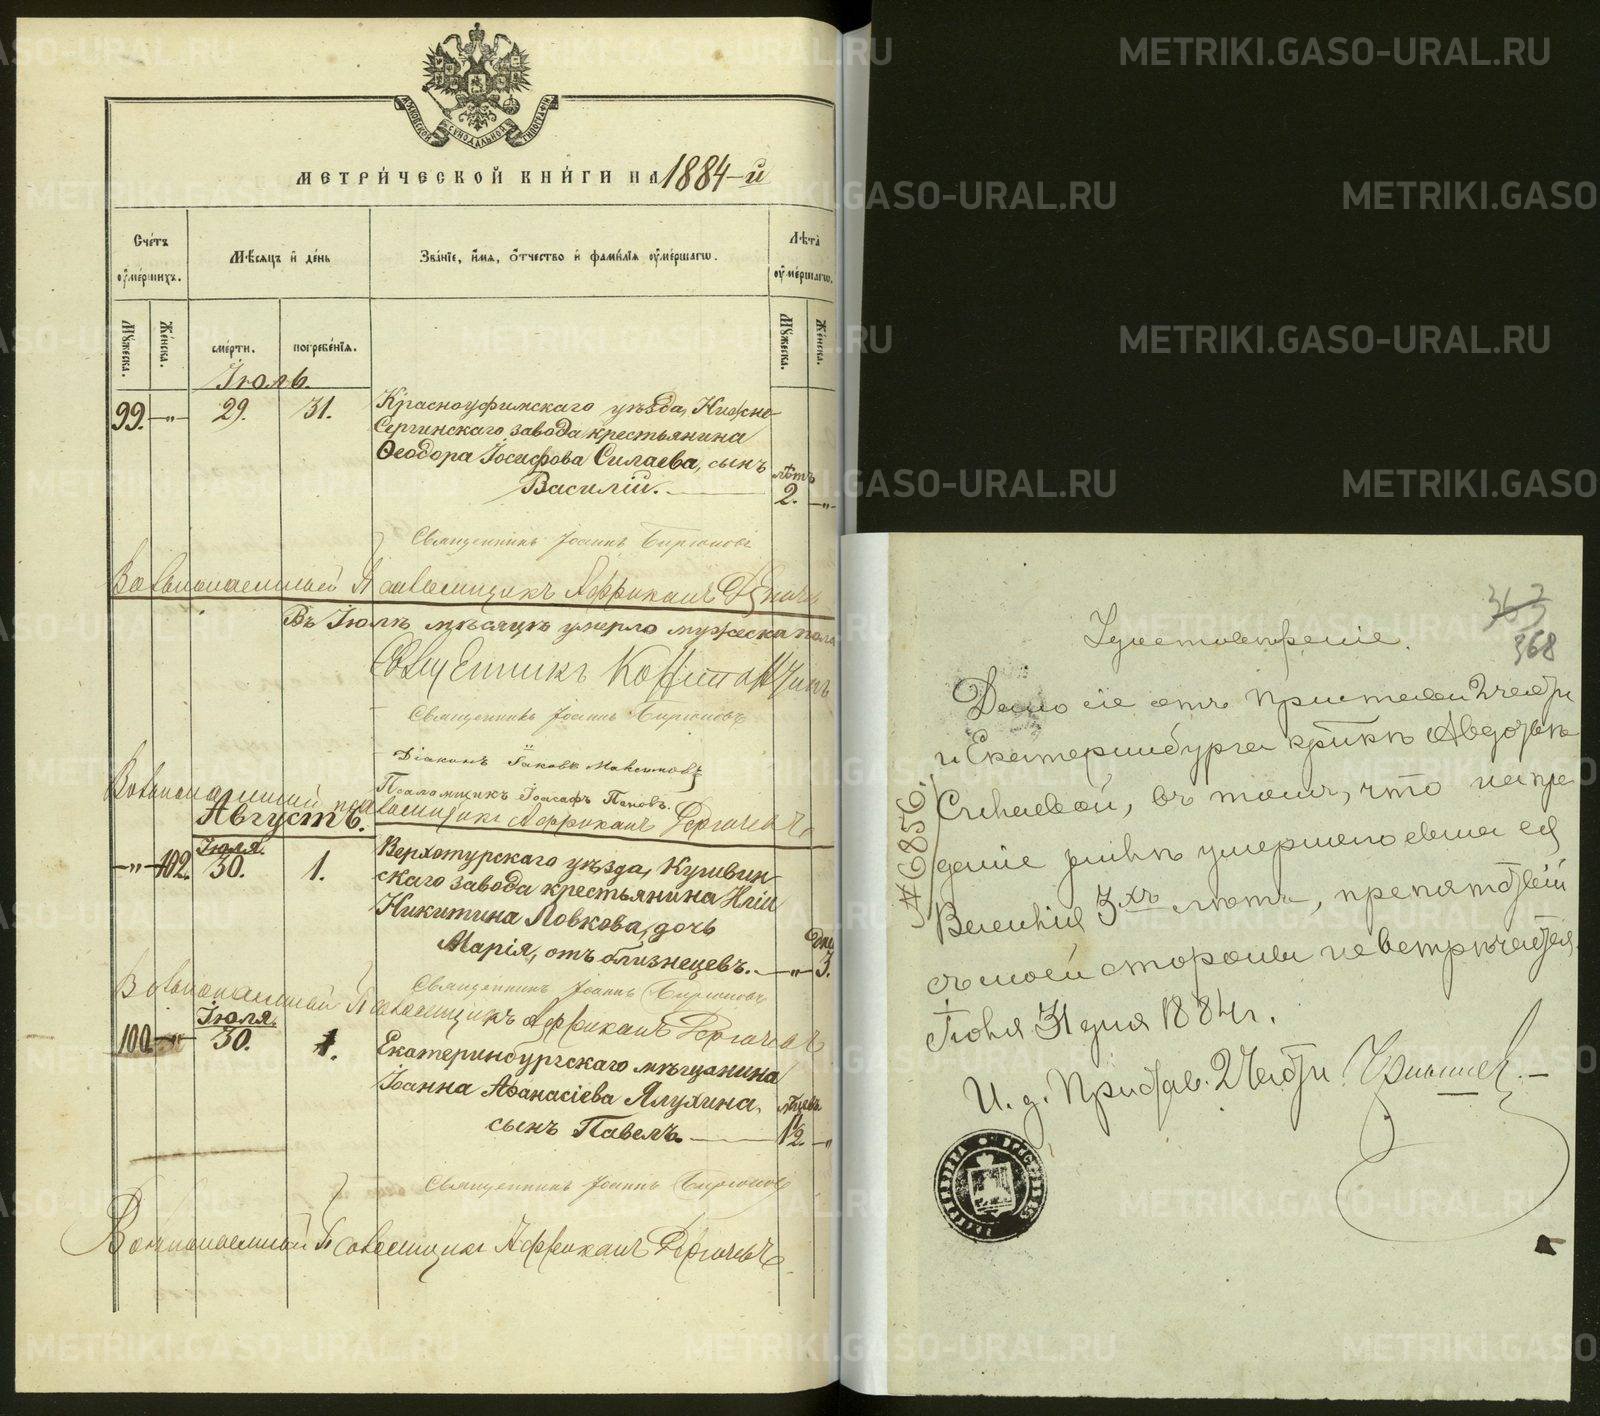 МЕТРИ́ЧЕСКОЙ КНИ́ГИ НА 1884-й
Сче́тъ оу҆ме́ршихъ.
Мѣ́сяцъ и҆ де́нь
Зва́нїе, и҆́мѧ, о҆́тчество и҆ фами́лїѧ оу҆ме́ршагѡ.
Лѣ́та оу҆ме́ршагѡ.
Мꙋ́жеска.
Же́нска.
сме́рти.
погребе́нїѧ.
Мꙋ́жеска.
Же́нска.
Іюль.
99. — „ — 29. 31.
Красноуфимскаго уѣзда, Нижне-
Сергинскаго завода крестьянина
Ѳеодора Іосифова Силаева, сынъ
Василій. —
лѣтъ
2. — „
Священникъ Іоаннъ Бирюковъ
Вольнонаемный Псаломщикъ Аффрикан
Въ Іюлѣ мѣсяцѣ умерло мужеска пола
Священникъ
Священникъ Іоаннъ Бирюковъ
Діаконъ Іаковъ Максимовъ
Псаломщикъ Іоасафъ Поповъ.
Вольнонаемный псаломщикъ Аффрикан
Августъ.
Іюля.
— „ — 102. 30. 1.
Верхотурскаго уѣзда, Кушвин-
скаго завода крестьянина Иліи
Никитина Ловкова, дочь
Марія, отъ близнецевъ. — „ —
Дня
3.
Священникъ Іоаннъ Бирюковъ
Вольнонаемный Псаломщикъ Аффрикан
Іюля.
100. — „ — 30. 1.
Екатеринбургскаго мѣщанина
Іоанна Аѳанасіева Ялухина,
сынъ Павелъ. —
1½. — „
Священникъ Іоаннъ Бирюковъ
Вольнонаемный Псаломщикъ Аффрикан
368
Удостовѣреніе.
Дано сіе отъ Пристава 2 части
г. Екатеринбурга Авдотьѣ
Силаевой, въ томъ, что на пре
даніе землѣ умершаго сына ея
Василія 3хъ лѣтъ, препятствій
съ моей стороны не встрѣчается.
Іюля 31 дня 1884 г.
И. д. Пристав. 2 Части
№ 6856.